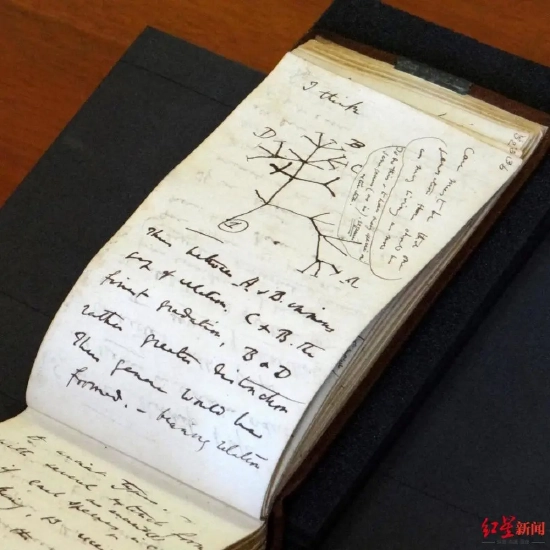 I think
D
B
C
A
1
Case must be that
one generation then should be
as many living as now
To do this & to have many species in
same genus (as is) requires
Thus between A & B. immense
gap of relation. C & B. the
finest gradation, B & D
rather greater distinction
Thus genera would be
formed. — bearing relation
to ancient types. —
with several extinct forms
if each species
红星新闻